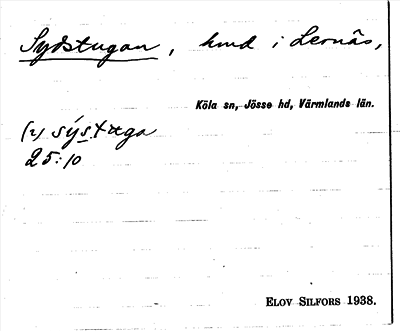 Sydstugan, hmd i Lernäs,
Köla sn, Jösse hd, Värmlands län.
(2) sýstuga
25:10
ELOV SILFORS 1938.